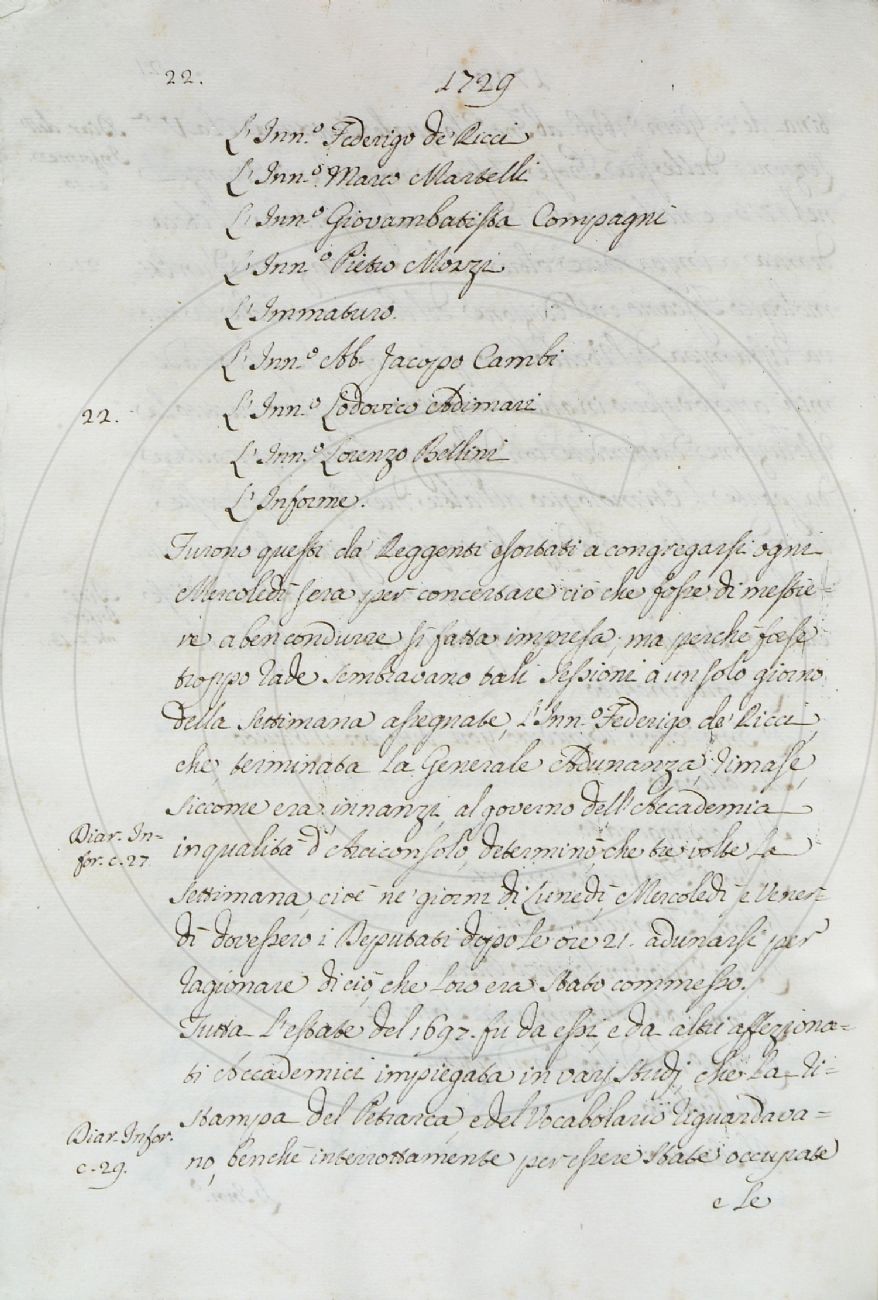 22.
1729
L' Inn.º Federigo de' Ricci
L' Inn.º Marco Martelli
L' Inn.º Giovambatista Compagni
L' Inn.º Pietro Mozzi
L' Immaturo.
L' Inn.º Ab. Jacopo Cambi
22.
L' Inn.º Lodovico Adimari
L' Inn.º Lorenzo Bellini
L' Informe.
Furono questi da' Reggenti esortati a congregarsi ogni
Mercoledì sera per concertare ciò che fosse di mestie=
re a ben condurre sì fatta impresa; ma perchè forse
troppo rade sembravano tali Sessioni a un solo giorno
della settimana assegnate, L'Inn.º Federigo de' Ricci,
che terminata la Generale Adunanza, rimase,
siccome era innanzi, al governo dell'Accademia
Diar. In=
for. c. 27.
in qualità d'Arciconsolo, determinò, che tre volte la
settimana, cioè ne' giorni di Lunedì, Mercoledì e Vener=
dì dovessero i Deputati dopo le ore 21. adunarsi per
ragionare di ciò, che loro era stato commesso.
Tutta l'estate del 1697. fu da essi, e da altri affeziona=
ti Accademici impiegata in varj studj, che la ri=
stampa del Petrarca, e del Vocabolario riguardava=
Diar. Infor.
c. 29.
no, benchè interrottamente per essere state occupate
e le